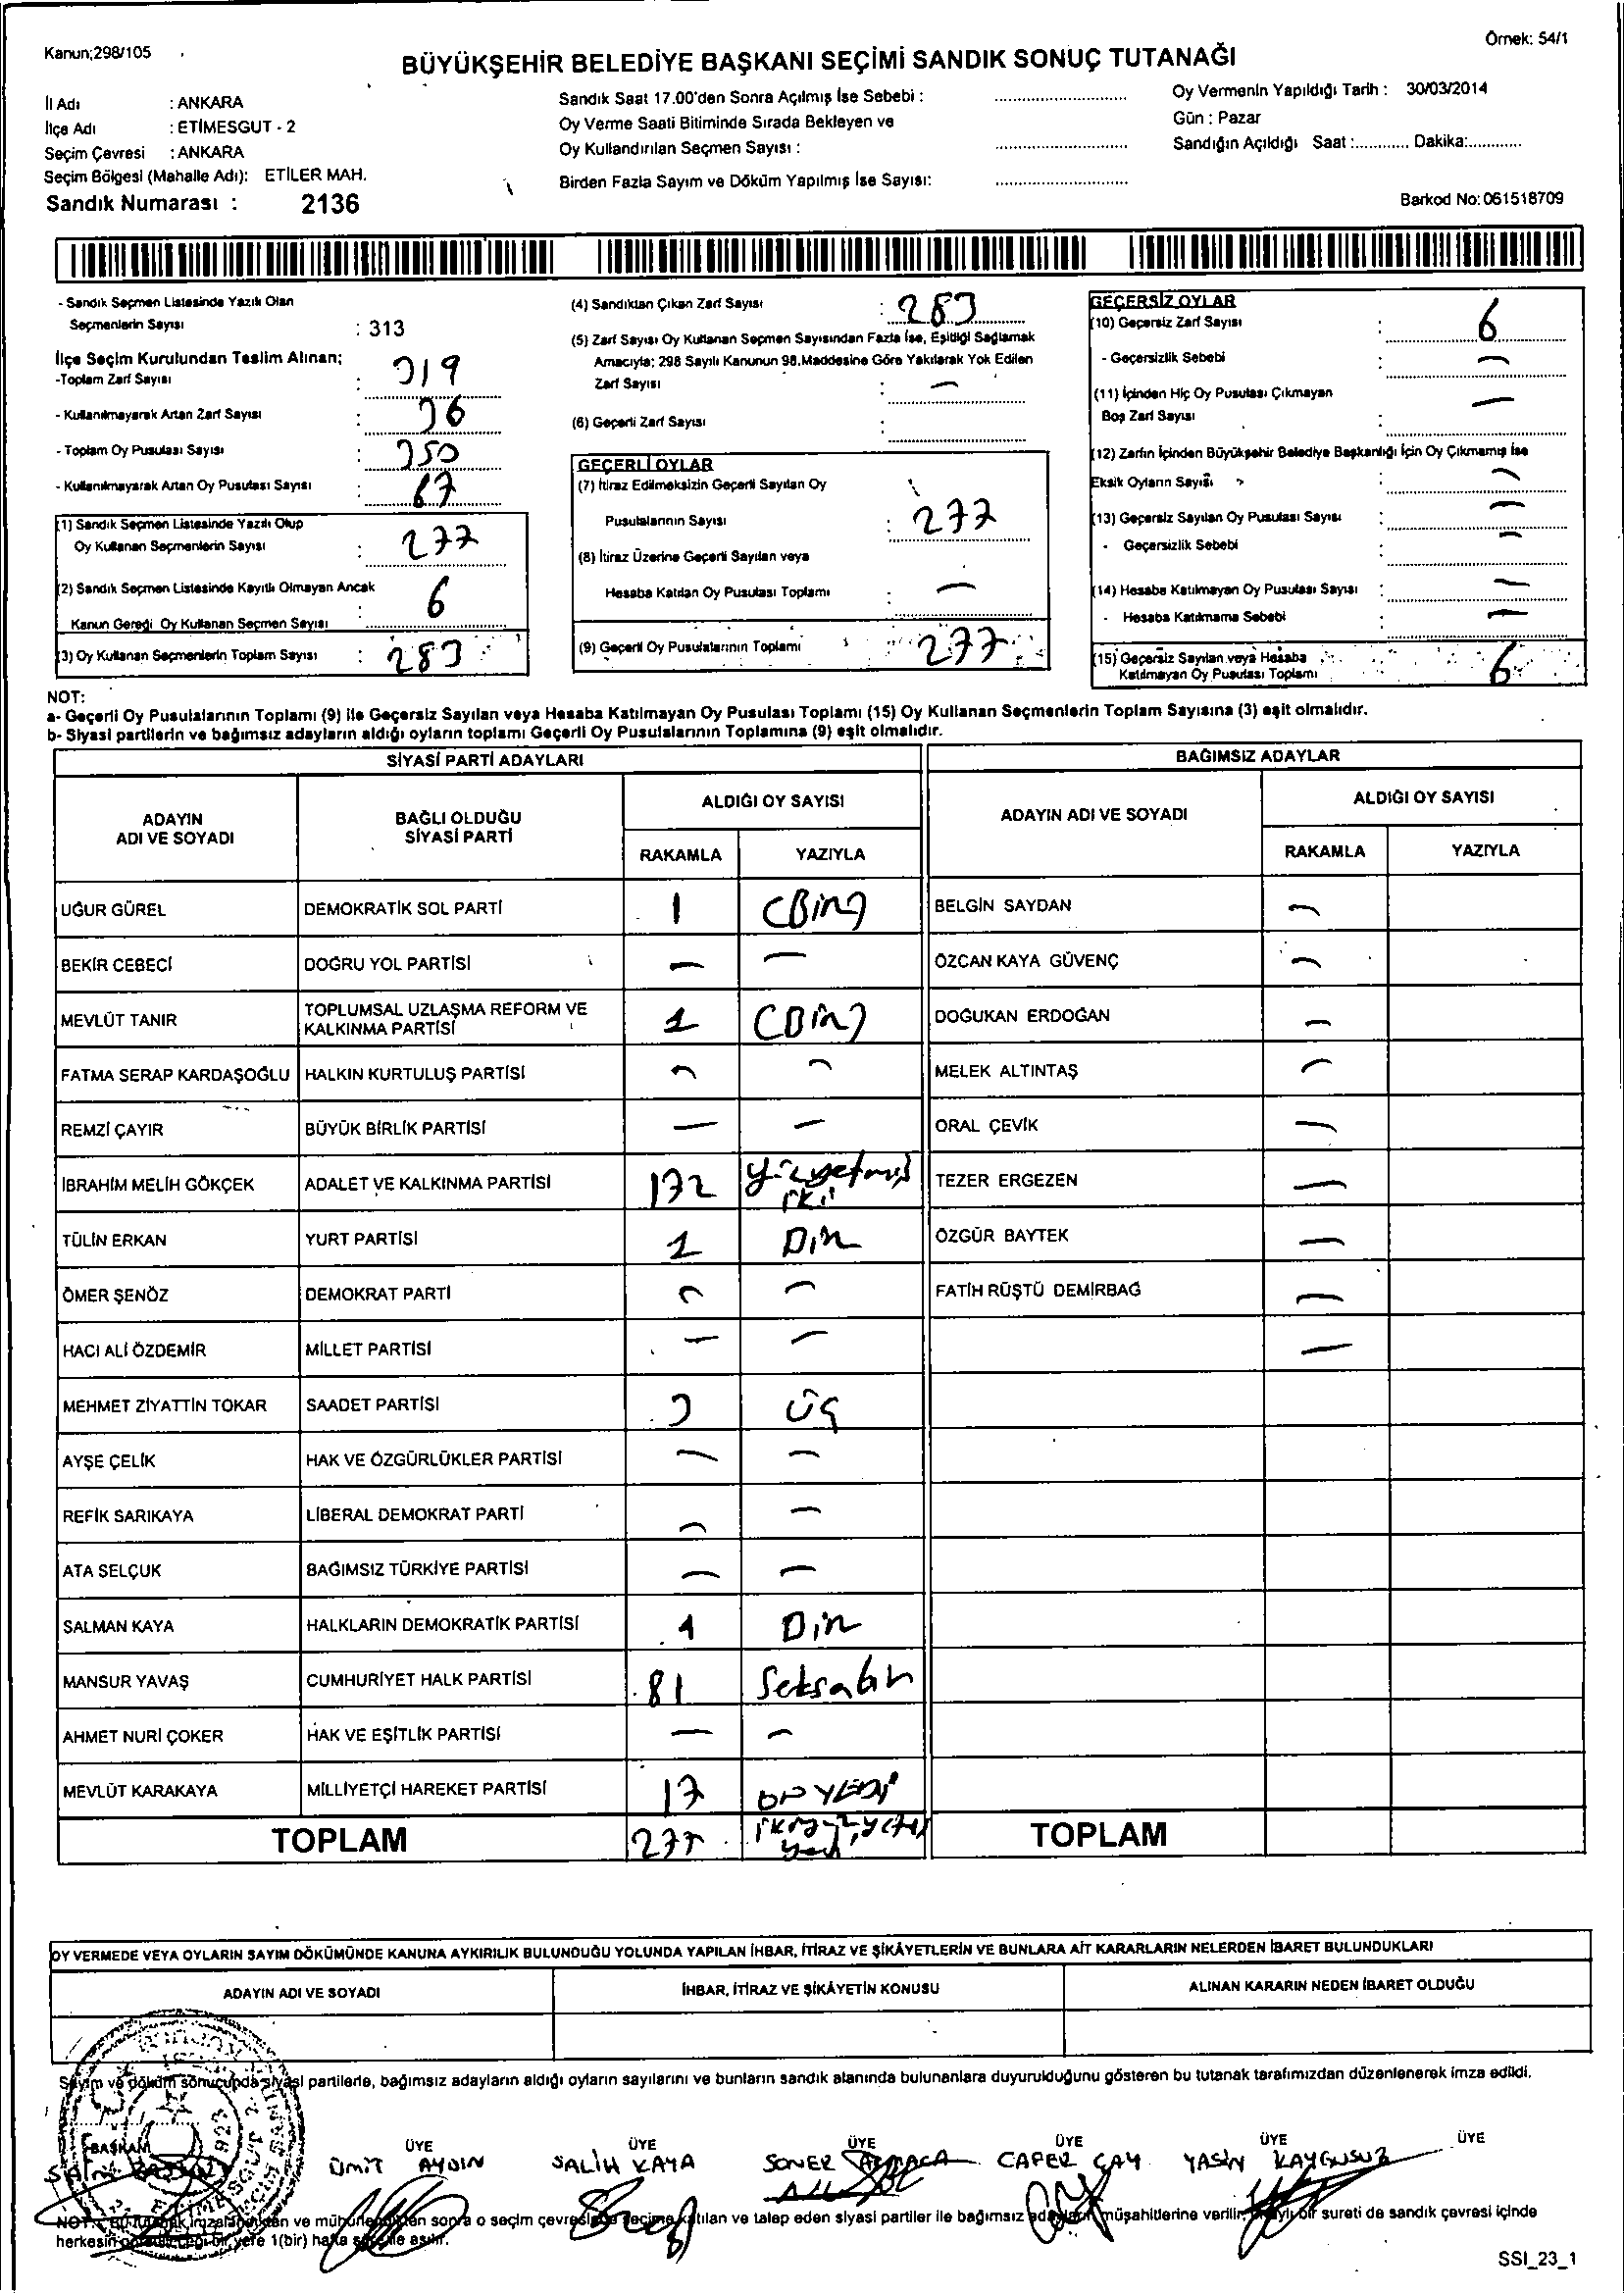 Kanun;298/105
Örnek: 54/1
BÜYÜKŞEHİR BELEDİYE BAŞKANI SEÇİMİ SANDIK SONUÇ TUTANAĞI
İl Adı : ANKARA
İlçe Adı : ETİMESGUT - 2
Seçim Çevresi : ANKARA
Seçim Bölgesi (Mahalle Adı): ETİLER MAH.
Sandık Numarası : 2136
Sandık Saat 17.00'den Sonra Açılmış İse Sebebi :
Oy Verme Saati Bitiminde Sırada Bekleyen ve
Oy Kullandırılan Seçmen Sayısı :
Birden Fazla Sayım ve Döküm Yapılmış İse Sayısı:
Oy Vermenin Yapıldığı Tarih : 30/03/2014
Gün : Pazar
Sandığın Açıldığı Saat :............ Dakika:............
Barkod No: 061518709
- Sandık Seçmen Listesinde Yazılı Olan
Seçmenlerin Sayısı : 313
İlçe Seçim Kurulundan Teslim Alınan;
-Toplam Zarf Sayısı : 319
- Kullanılmayarak Artan Zarf Sayısı : 36
- Toplam Oy Pusulası Sayısı : 350
- Kullanılmayarak Artan Oy Pusulası Sayısı : 67
(1) Sandık Seçmen Listesinde Yazılı Olup
Oy Kullanan Seçmenlerin Sayısı : 277
(2) Sandık Seçmen Listesinde Kayıtlı Olmayan Ancak
Kanun Gereği Oy Kullanan Seçmen Sayısı : 6
(3) Oy Kullanan Seçmenlerin Toplam Sayısı : 283
(4) Sandıktan Çıkan Zarf Sayısı : 283
(5) Zarf Sayısı Oy Kullanan Seçmen Sayısından Fazla İse, Eşitliği Sağlamak
Amacıyla; 298 Sayılı Kanunun 98.Maddesine Göre Yakılarak Yok Edilen
Zarf Sayısı : —
(6) Geçerli Zarf Sayısı :
GEÇERLİ OYLAR
(7) İtiraz Edilmeksizin Geçerli Sayılan Oy
Pusulalarının Sayısı : 277
(8) İtiraz Üzerine Geçerli Sayılan veya
Hesaba Katılan Oy Pusulası Toplamı : —
(9) Geçerli Oy Pusulalarının Toplamı : 277
GEÇERSİZ OYLAR
(10) Geçersiz Zarf Sayısı : 6
- Geçersizlik Sebebi : —
(11) İçinden Hiç Oy Pusulası Çıkmayan
Boş Zarf Sayısı : —
(12) Zarfın İçinden Büyükşehir Belediye Başkanlığı İçin Oy Çıkmamış İse
Eksik Oyların Sayısı : —
(13) Geçersiz Sayılan Oy Pusulası Sayısı : —
- Geçersizlik Sebebi : —
(14) Hesaba Katılmayan Oy Pusulası Sayısı : —
- Hesaba Katılmama Sebebi : —
(15) Geçersiz Sayılan veya Hesaba
Katılmayan Oy Pusulası Toplamı : 6
NOT:
a- Geçerli Oy Pusulalarının Toplamı (9) ile Geçersiz Sayılan veya Hesaba Katılmayan Oy Pusulası Toplamı (15) Oy Kullanan Seçmenlerin Toplam Sayısına (3) eşit olmalıdır.
b- Siyasi partilerin ve bağımsız adayların aldığı oyların toplamı Geçerli Oy Pusulalarının Toplamına (9) eşit olmalıdır.
SİYASİ PARTİ ADAYLARI
ADAYIN ADI VE SOYADI
BAĞLI OLDUĞU SİYASİ PARTİ
ALDIĞI OY SAYISI
RAKAMLA YAZIYLA
UĞUR GÜREL DEMOKRATİK SOL PARTİ 1 (Bir)
BEKİR CEBECİ DOĞRU YOL PARTİSİ — —
MEVLÜT TANIR TOPLUMSAL UZLAŞMA REFORM VE KALKINMA PARTİSİ 1 (Bir)
FATMA SERAP KARDAŞOĞLU HALKIN KURTULUŞ PARTİSİ — —
REMZİ ÇAYIR BÜYÜK BİRLİK PARTİSİ — —
İBRAHİM MELİH GÖKÇEK ADALET VE KALKINMA PARTİSİ 172 yüzyetmiş iki
TÜLİN ERKAN YURT PARTİSİ 1 Bir
ÖMER ŞENÖZ DEMOKRAT PARTİ — —
HACI ALİ ÖZDEMİR MİLLET PARTİSİ — —
MEHMET ZİYATTİN TOKAR SAADET PARTİSİ 3 üç
AYŞE ÇELİK HAK VE ÖZGÜRLÜKLER PARTİSİ — —
REFİK SARIKAYA LİBERAL DEMOKRAT PARTİ — —
ATA SELÇUK BAĞIMSIZ TÜRKİYE PARTİSİ — —
SALMAN KAYA HALKLARIN DEMOKRATİK PARTİSİ 1 Bir
MANSUR YAVAŞ CUMHURİYET HALK PARTİSİ 81 Seksabir
AHMET NURİ ÇOKER HAK VE EŞİTLİK PARTİSİ — —
MEVLÜT KARAKAYA MİLLİYETÇİ HAREKET PARTİSİ 17 ONYEDİ
TOPLAM 277
BAĞIMSIZ ADAYLAR
ADAYIN ADI VE SOYADI
ALDIĞI OY SAYISI
RAKAMLA YAZIYLA
BELGİN SAYDAN —
ÖZCAN KAYA GÜVENÇ —
DOĞUKAN ERDOĞAN —
MELEK ALTINTAŞ —
ORAL ÇEVİK —
TEZER ERGEZEN —
ÖZGÜR BAYTEK —
FATİH RÜŞTÜ DEMİRBAĞ —
—
TOPLAM
OY VERMEDE VEYA OYLARIN SAYIM DÖKÜMÜNDE KANUNA AYKIRILIK BULUNDUĞU YOLUNDA YAPILAN İHBAR, İTİRAZ VE ŞİKÂYETLERİN VE BUNLARA AİT KARARLARIN NELERDEN İBARET BULUNDUKLARI
ADAYIN ADI VE SOYADI
İHBAR, İTİRAZ VE ŞİKÂYETİN KONUSU
ALINAN KARARIN NEDEN İBARET OLDUĞU
Sayım ve döküm sonucunda siyasi partilerle, bağımsız adayların aldığı oyların sayılarını ve bunların sandık alanında bulunanlara duyurulduğunu gösteren bu tutanak tarafımızdan düzenlenerek imza edildi.
BAŞKAN ÜYE ÜYE ÜYE ÜYE ÜYE ÜYE
ÜMİT AYDIN SALİH KAYA SONER CAFER ÇAY YASİN KAYGUSUZ
NOT: Bu tutanak imzalandıktan ve mühürlendikten sonra o seçim çevresinde seçime katılan ve talep eden siyasi partiler ile bağımsız adayların müşahitlerine verilir, onaylı bir sureti de sandık çevresi içinde
herkesin görebileceği bir yere 1(bir) hafta süre ile asılır.
SSI_23_1